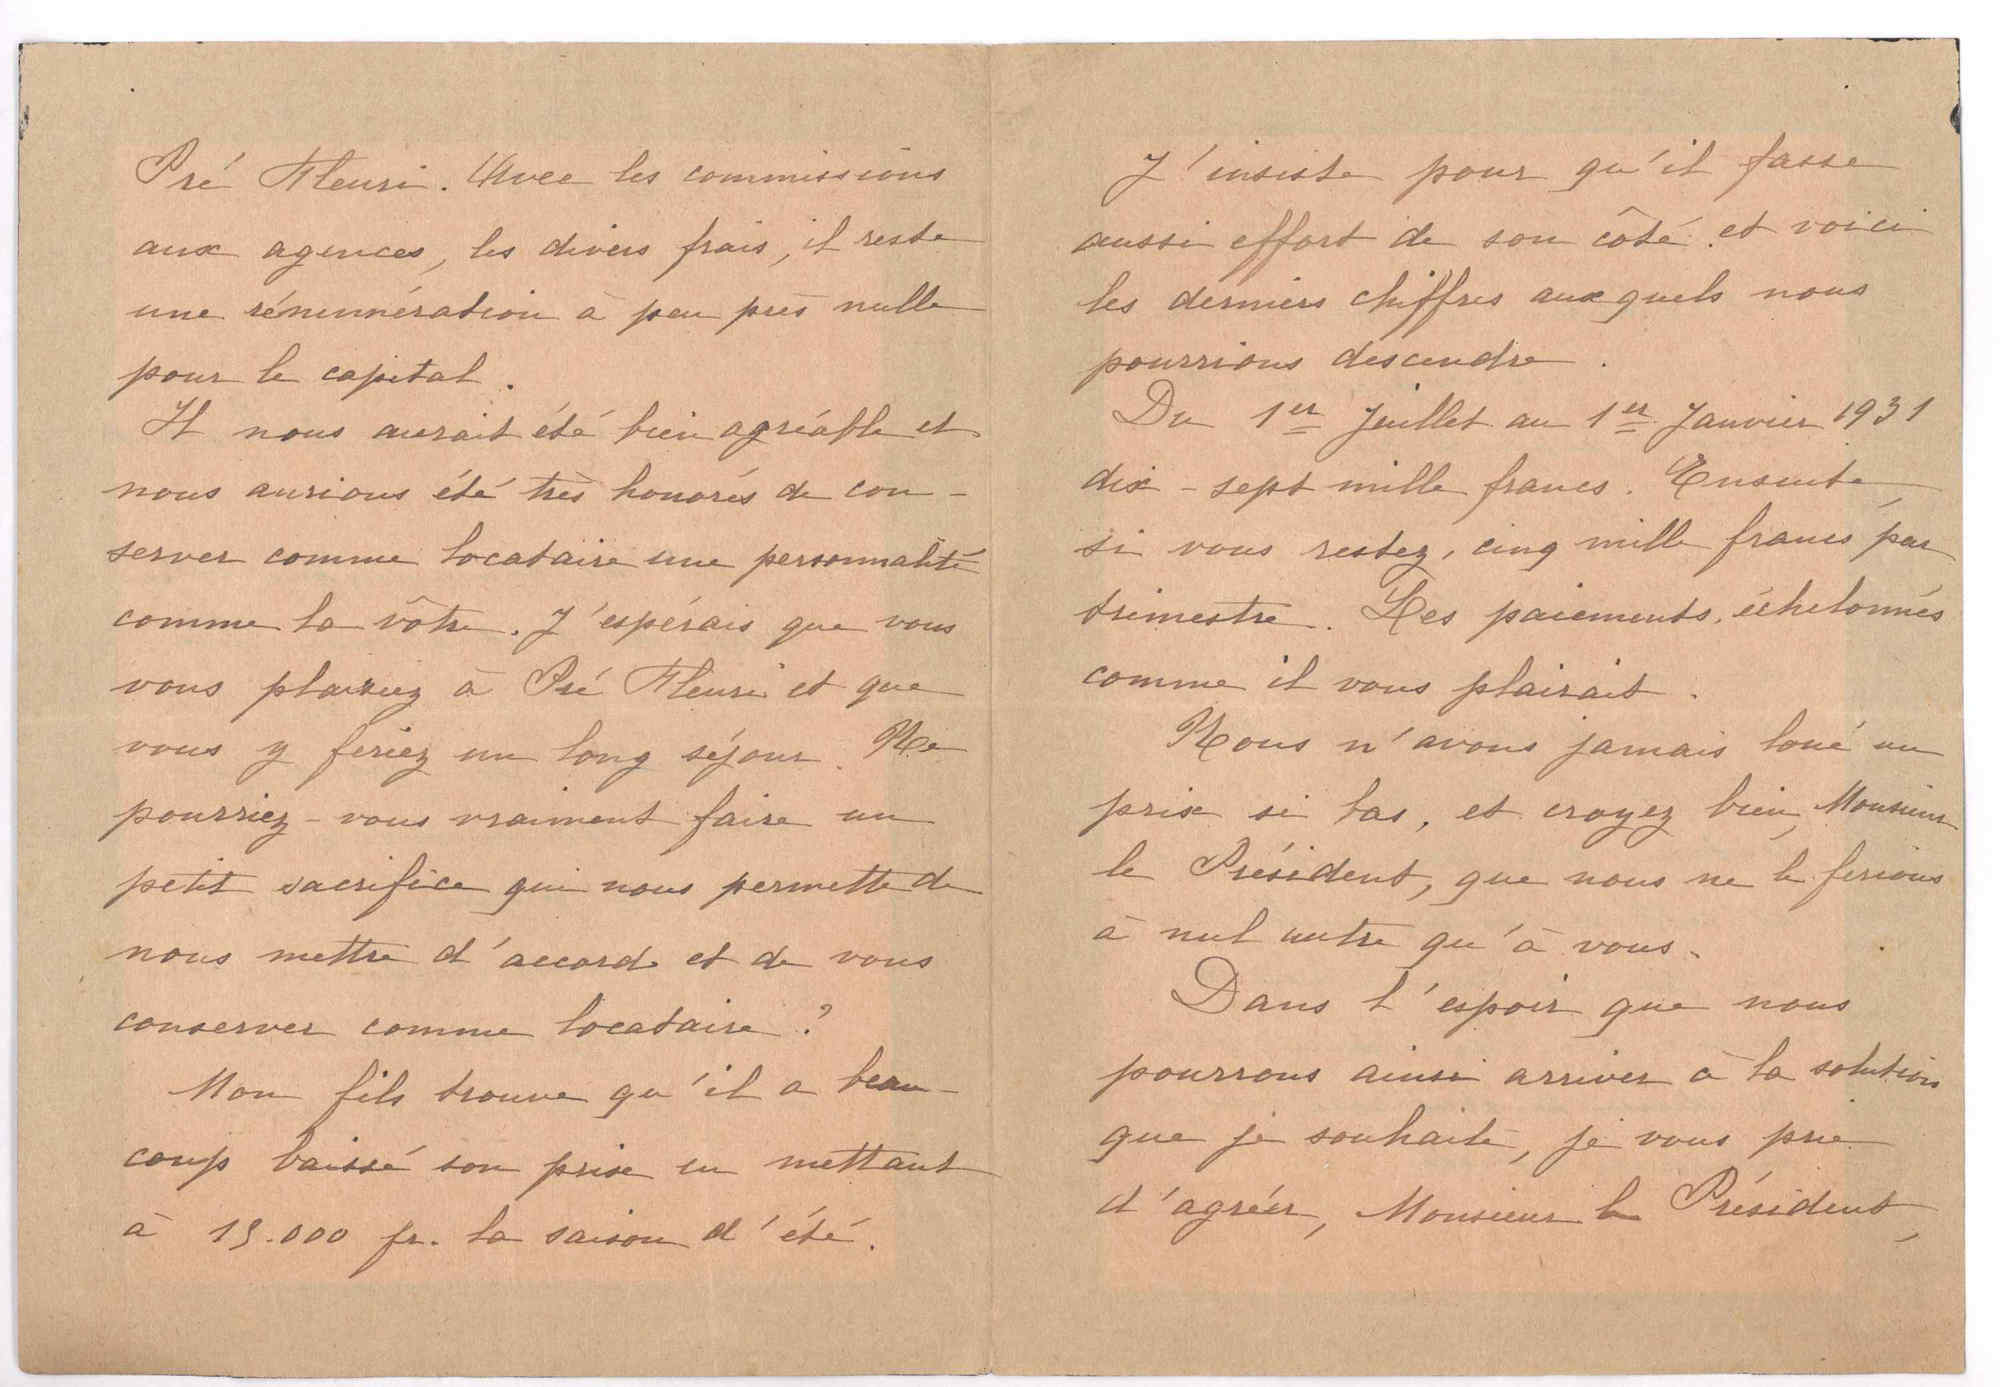 Pré Fleuri. Avec les commissions
aux agences, les divers frais, il reste
une rénumération à peu près nulle
pour le capital.
Il nous aurait été bien agréable et
nous aurions été très honorés de con-
server comme locataire une personnalité
comme la vôtre. J'espérais que vous
vous plairiez à Pré Fleuri et que
vous y feriez un long séjour. Ne
pourriez-vous vraiment faire un
petit sacrifice qui nous permette de
nous mettre d'accord et de vous
conserver comme locataire ?
Mon fils trouve qu'il a beau-
coup baissé son prix en mettant
à 19.000 fr. la saison d'été.
J'insiste pour qu'il fasse
aussi effort de son côté et voici
les derniers chiffres auxquels nous
pourrions descendre.
Du 1er Juillet au 1er Janvier 1931
dix-sept mille francs. Ensuite,
si vous restez, cinq mille francs par
trimestre. Les paiements, échelonnés
comme il vous plairait.
Nous n'avons jamais loué un
prix si bas, et croyez bien, Monsieur
le Président, que nous ne le ferions
à nul autre qu'à vous.
Dans l'espoir que nous
pourrons ainsi arriver à la solution
que je souhaite, je vous prie
d'agréer, Monsieur le Président,